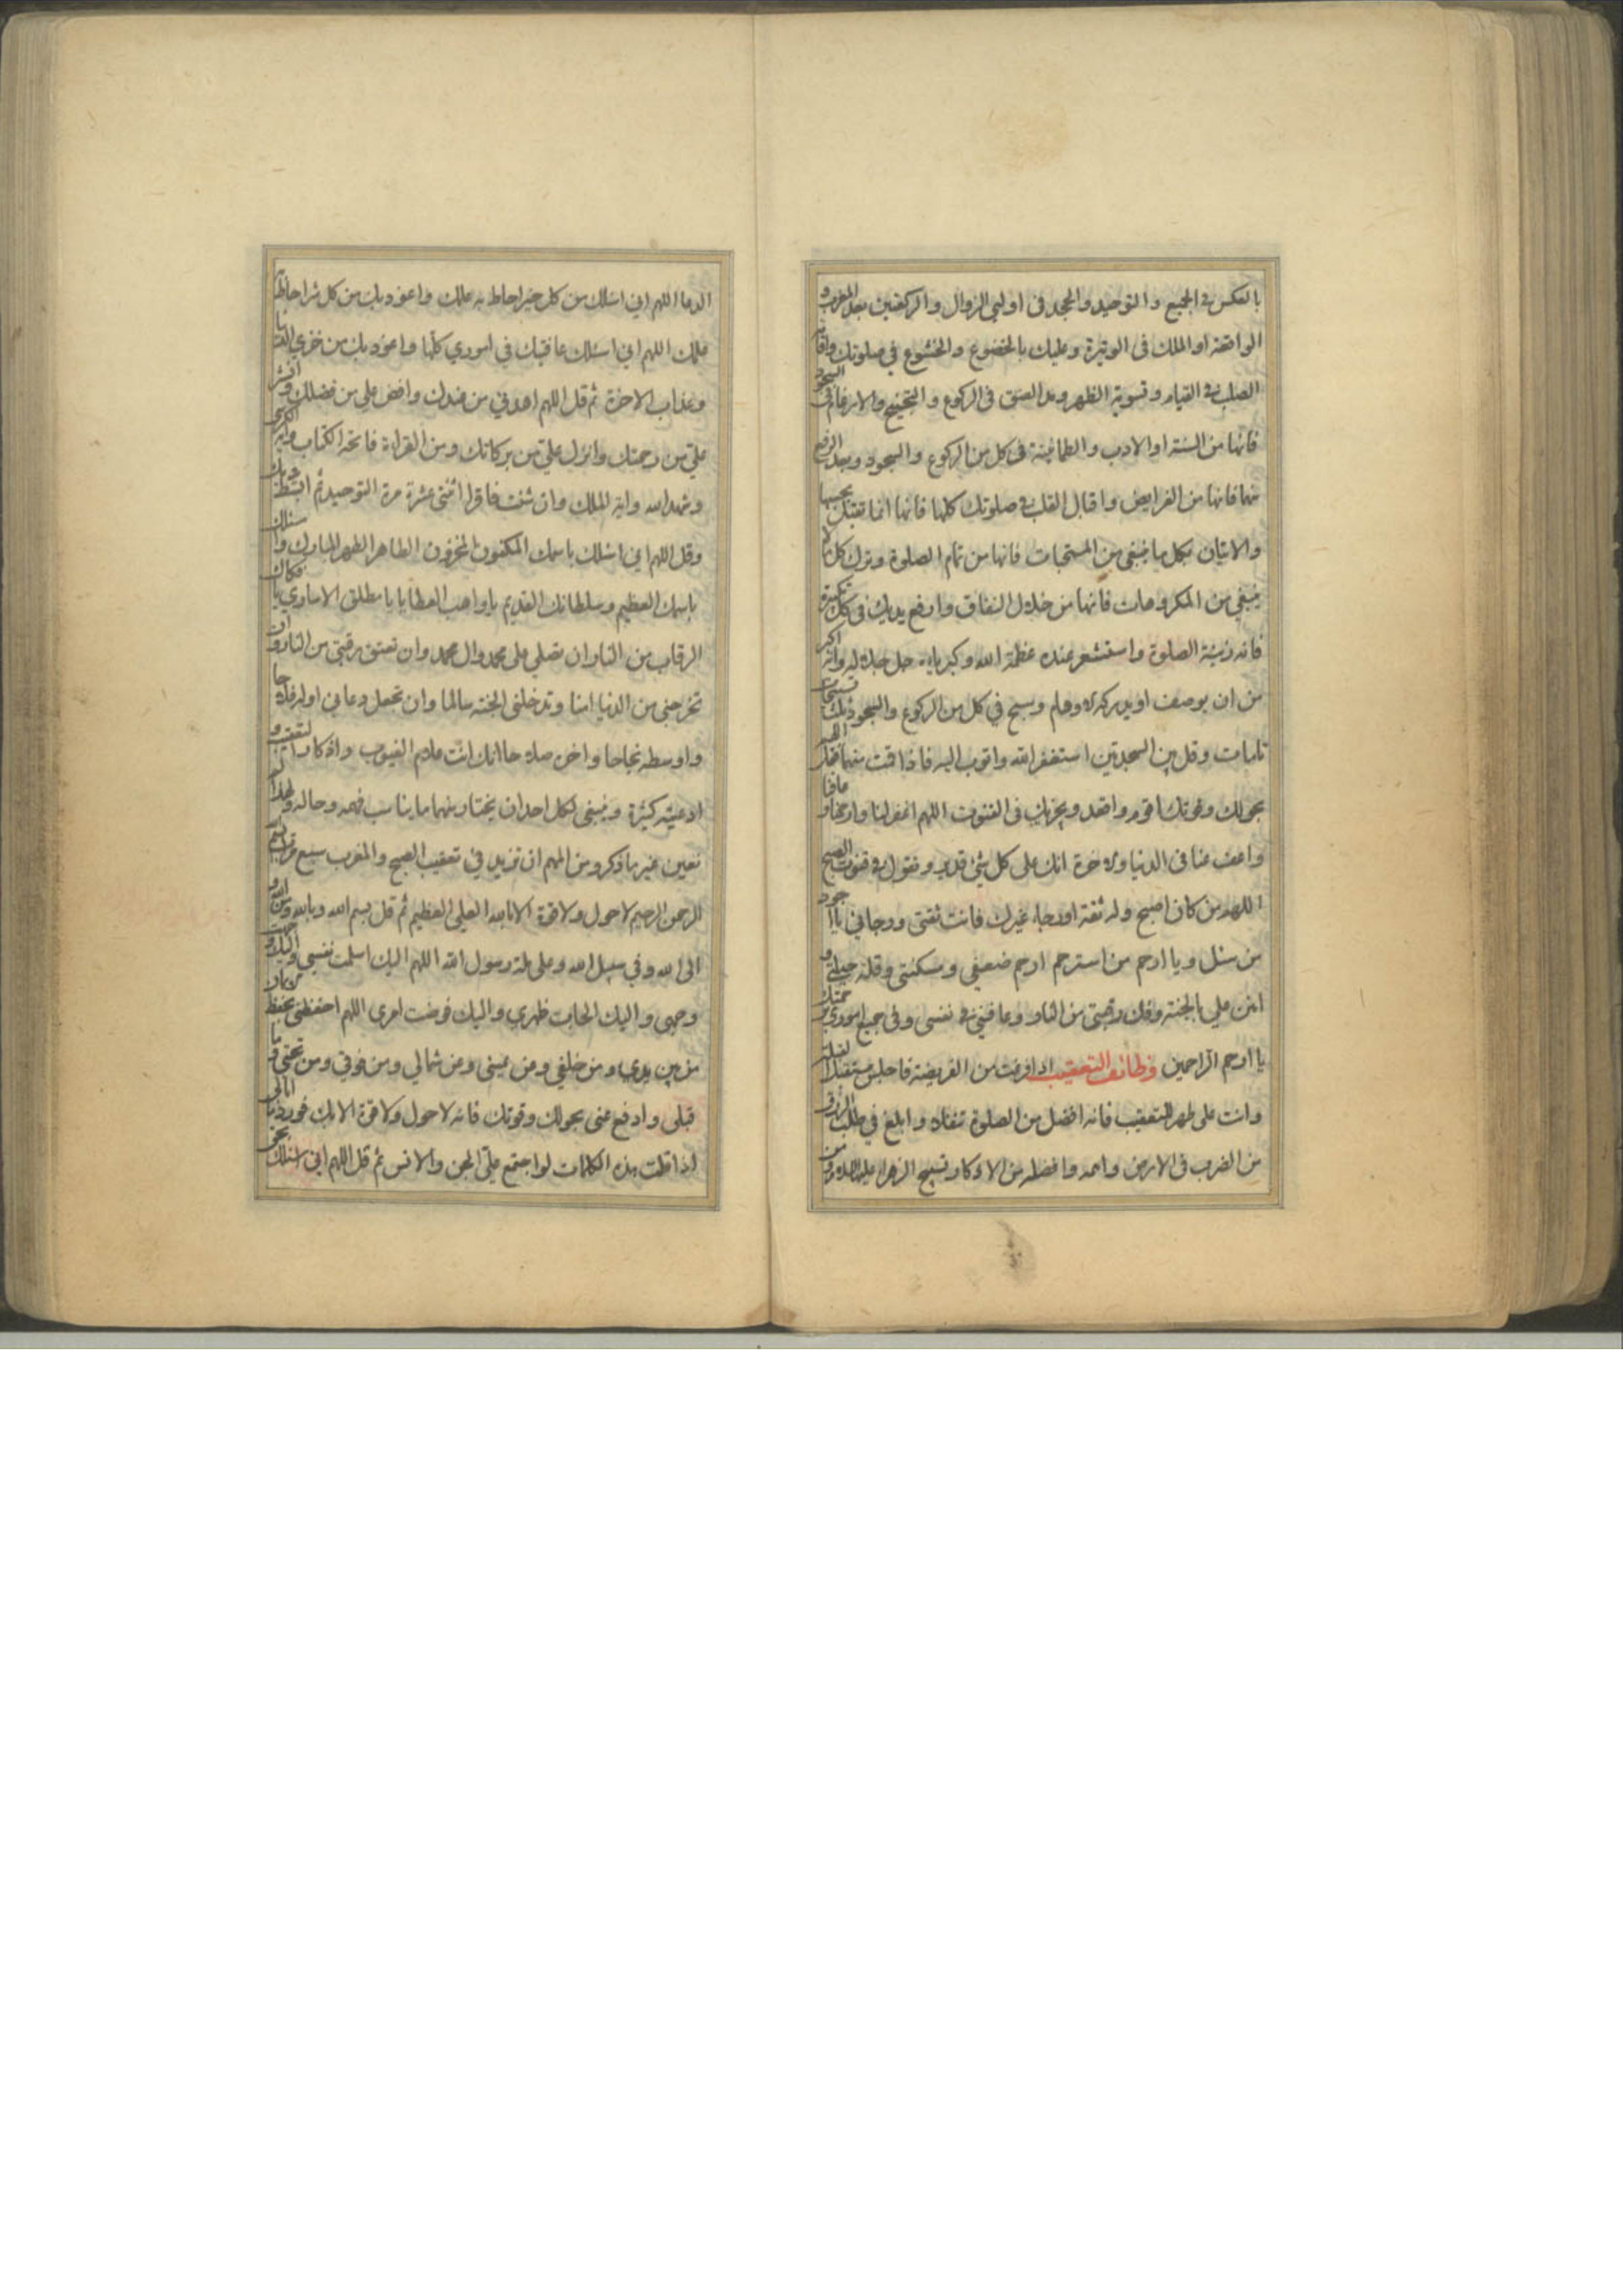 بالعكس في الجميع والتوحيد والجحد في اوليي الزوال والركعتين بعد المغرب و
الواقعة او الملك في الوتيرة وعليك بالخضوع والخشوع في صلوتك واقامة
الصلب في القيام وتسوية الظهر ومد العنق في الركوع والتجنيح والارغام في السجود
فانها من السنة او الادب والطمانينة في كل من الركوع والسجود وبعد الرفع
منهما فانها من الفرايض واقبال القلب في صلوتك كلها فانها انما تقبل بحسبها
والاتيان بكل ما ينبغي من المستحبات فانها من تمام الصلوة وترك كل ما لا
ينبغي من المكروهات فانها من خلال النفاق وارفع يديك في كل تكبيرة
فانه زينة الصلوة واستشعر عنده عظمة الله وكبرياءه جل جلاله وانه اكبر
من ان يوصف او يدركه الاوهام وسبح في كل من الركوع والسجود ثلث تسبيحات
تامات وقل بين السجدتين استغفر الله واتوب اليه فاذا قمت منهما فقل اللهم
بحولك وقوتك اقوم واقعد ويجزيك في القنوت اللهم اغفر لنا وارحمنا وعافنا
واعف عنا في الدنيا والاخرة انك على كل شئ قدير وتقول في قنوت الصبح
اللهم من كان اصبح وله ثقة او رجاء غيرك فانت ثقتي ورجائي يا اجود
من سئل ويا ارحم من استرحم ارحم ضعفي ومسكنتي وقلة حيلتي و
امنن علي بالجنة وفك رقبتي من النار وعافني في نفسي وفي جميع اموري برحمتك
يا ارحم الراحمين وظائف التعقيب اذا فرغت من الفريضة فاجلس مستقبل القبلة
وانت على طهر للتعقيب فانه افضل من الصلوة تنفلا وابلغ في طلب الرزق
من الضرب في الارض واهمه وافضله من الاذكار تسبيح الزهراء عليها السلام ومن
الدعا اللهم اني اسئلك من كل خير احاط به علمك واعوذ بك من كل شر احاط به
علمك اللهم اني اسئلك عافيتك في اموري كلها واعوذ بك من خزي الدنيا
وعذاب الاخرة ثم قل اللهم اهدني من عندك وافض علي من فضلك وانشر
علي من رحمتك وانزل علي من بركاتك ومن القراءة فاتحة الكتاب واية الكرسي
وشهد الله واية الملك وان شئت فاقرا اثنتي عشرة مرة التوحيد ثم ابسط يديك
وقل اللهم اني اسئلك باسمك المكنون المخزون الطاهر الطهر المبارك واسئلك
باسمك العظيم وسلطانك القديم يا واهب العطايا يا مطلق الاسارى يا فكاك
الرقاب من النار ان تصلي على محمد وال محمد وان تعتق رقبتي من النار وان
تخرجني من الدنيا امنا وتدخلني الجنة سالما وان تجعل دعائي اوله فلاحا
واوسطه نجاحا واخره صلاحا انك انت علام الغيوب واذكار التعقيب و
ادعيته كثيرة وينبغي لكل احد ان يختار منهما ما يناسب فهمه وحاله ولهذا لم
نعين غير ما ذكر ومن المهم ان تزيد في تعقيب الصبح والمغرب سبع مرات بسم الله
الرحمن الرحيم لاحول ولا قوة الا بالله العلي العظيم ثم قل بسم الله وبالله ومن الله و
الى الله وفي سبيل الله وعلى ملة رسول الله اللهم اليك اسلمت نفسي واليك وجهت
وجهي واليك الجات ظهري واليك فوضت امري اللهم احفظني بحفظ الايمان
من بين يدي ومن خلفي وعن يميني وعن شمالي ومن فوقي ومن تحتي وما
قبلي وادفع عني بحولك وقوتك فانه لا حول ولا قوة الا بك
اذا قلت هذه الكلمات لو اجتمع علي الجن والانس ثم قل اللهم اني اسئلك بحق